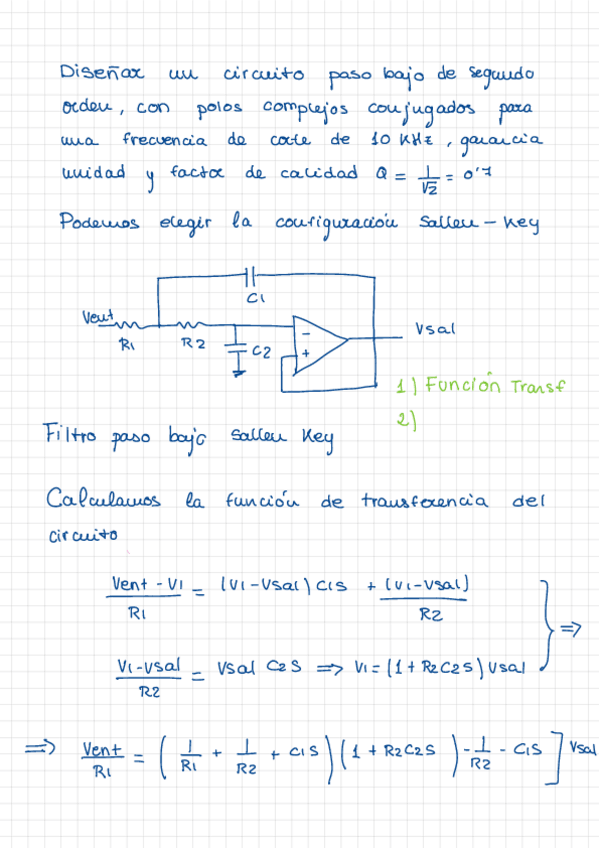 Diseñar un circuito paso bajo de segundo
orden, con polos complejos conjugados para
una frecuencia de corte de 10 KHz, ganancia
unidad y factor de calidad Q = 1/√2 = 0'7
Podemos elegir la configuración Sallen-Key
C1
Vent
R1
R2
C2
-
+
Vsal
1) Función Transf
2)
Filtro paso bajo Sallen Key
Calculamos la función de transferencia del
circuito
(Vent - V1)/R1 = (V1-Vsal)C1S + (V1-Vsal)/R2
⇒
(V1-Vsal)/R2 = Vsal C2S ⇒ V1 = (1 + R2C2S) Vsal
⇒ Vent/R1 = ( 1/R1 + 1/R2 + C1S )(1 + R2C2S ) - 1/R2 - C1S ] Vsal